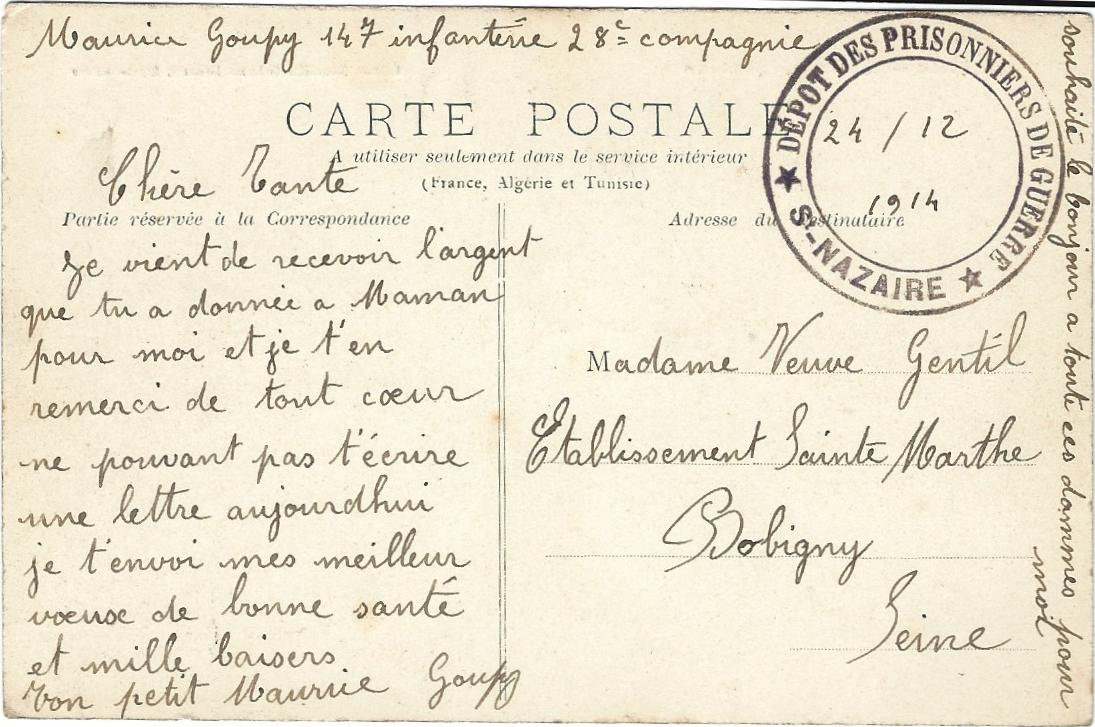 Maurice Goupy 147 infanterie 28e compagnie
CARTE POSTALE
A utiliser seulement dans le service intérieur
(France, Algérie et Tunisie)
Chère Tante
Partie réservée à la Correspondance
Je vient de recevoir l'argent
que tu a donnée a Maman
pour moi et je t'en
remerci de tout cœur
ne pouvant pas t'écrire
une lettre aujourdhui
je t'envoi mes meilleur
vœuse de bonne santé
et mille baisers
Ton petit Maurice Goupy
Adresse du Destinataire
Madame Veuve Gentil
Etablissement Sainte Marthe
Bobigny
Seine
DÉPOT DES PRISONNIERS DE GUERRE
★ St-NAZAIRE ★
24 / 12
1914
souhaite le bonjour a toute ces dammes pour
moi